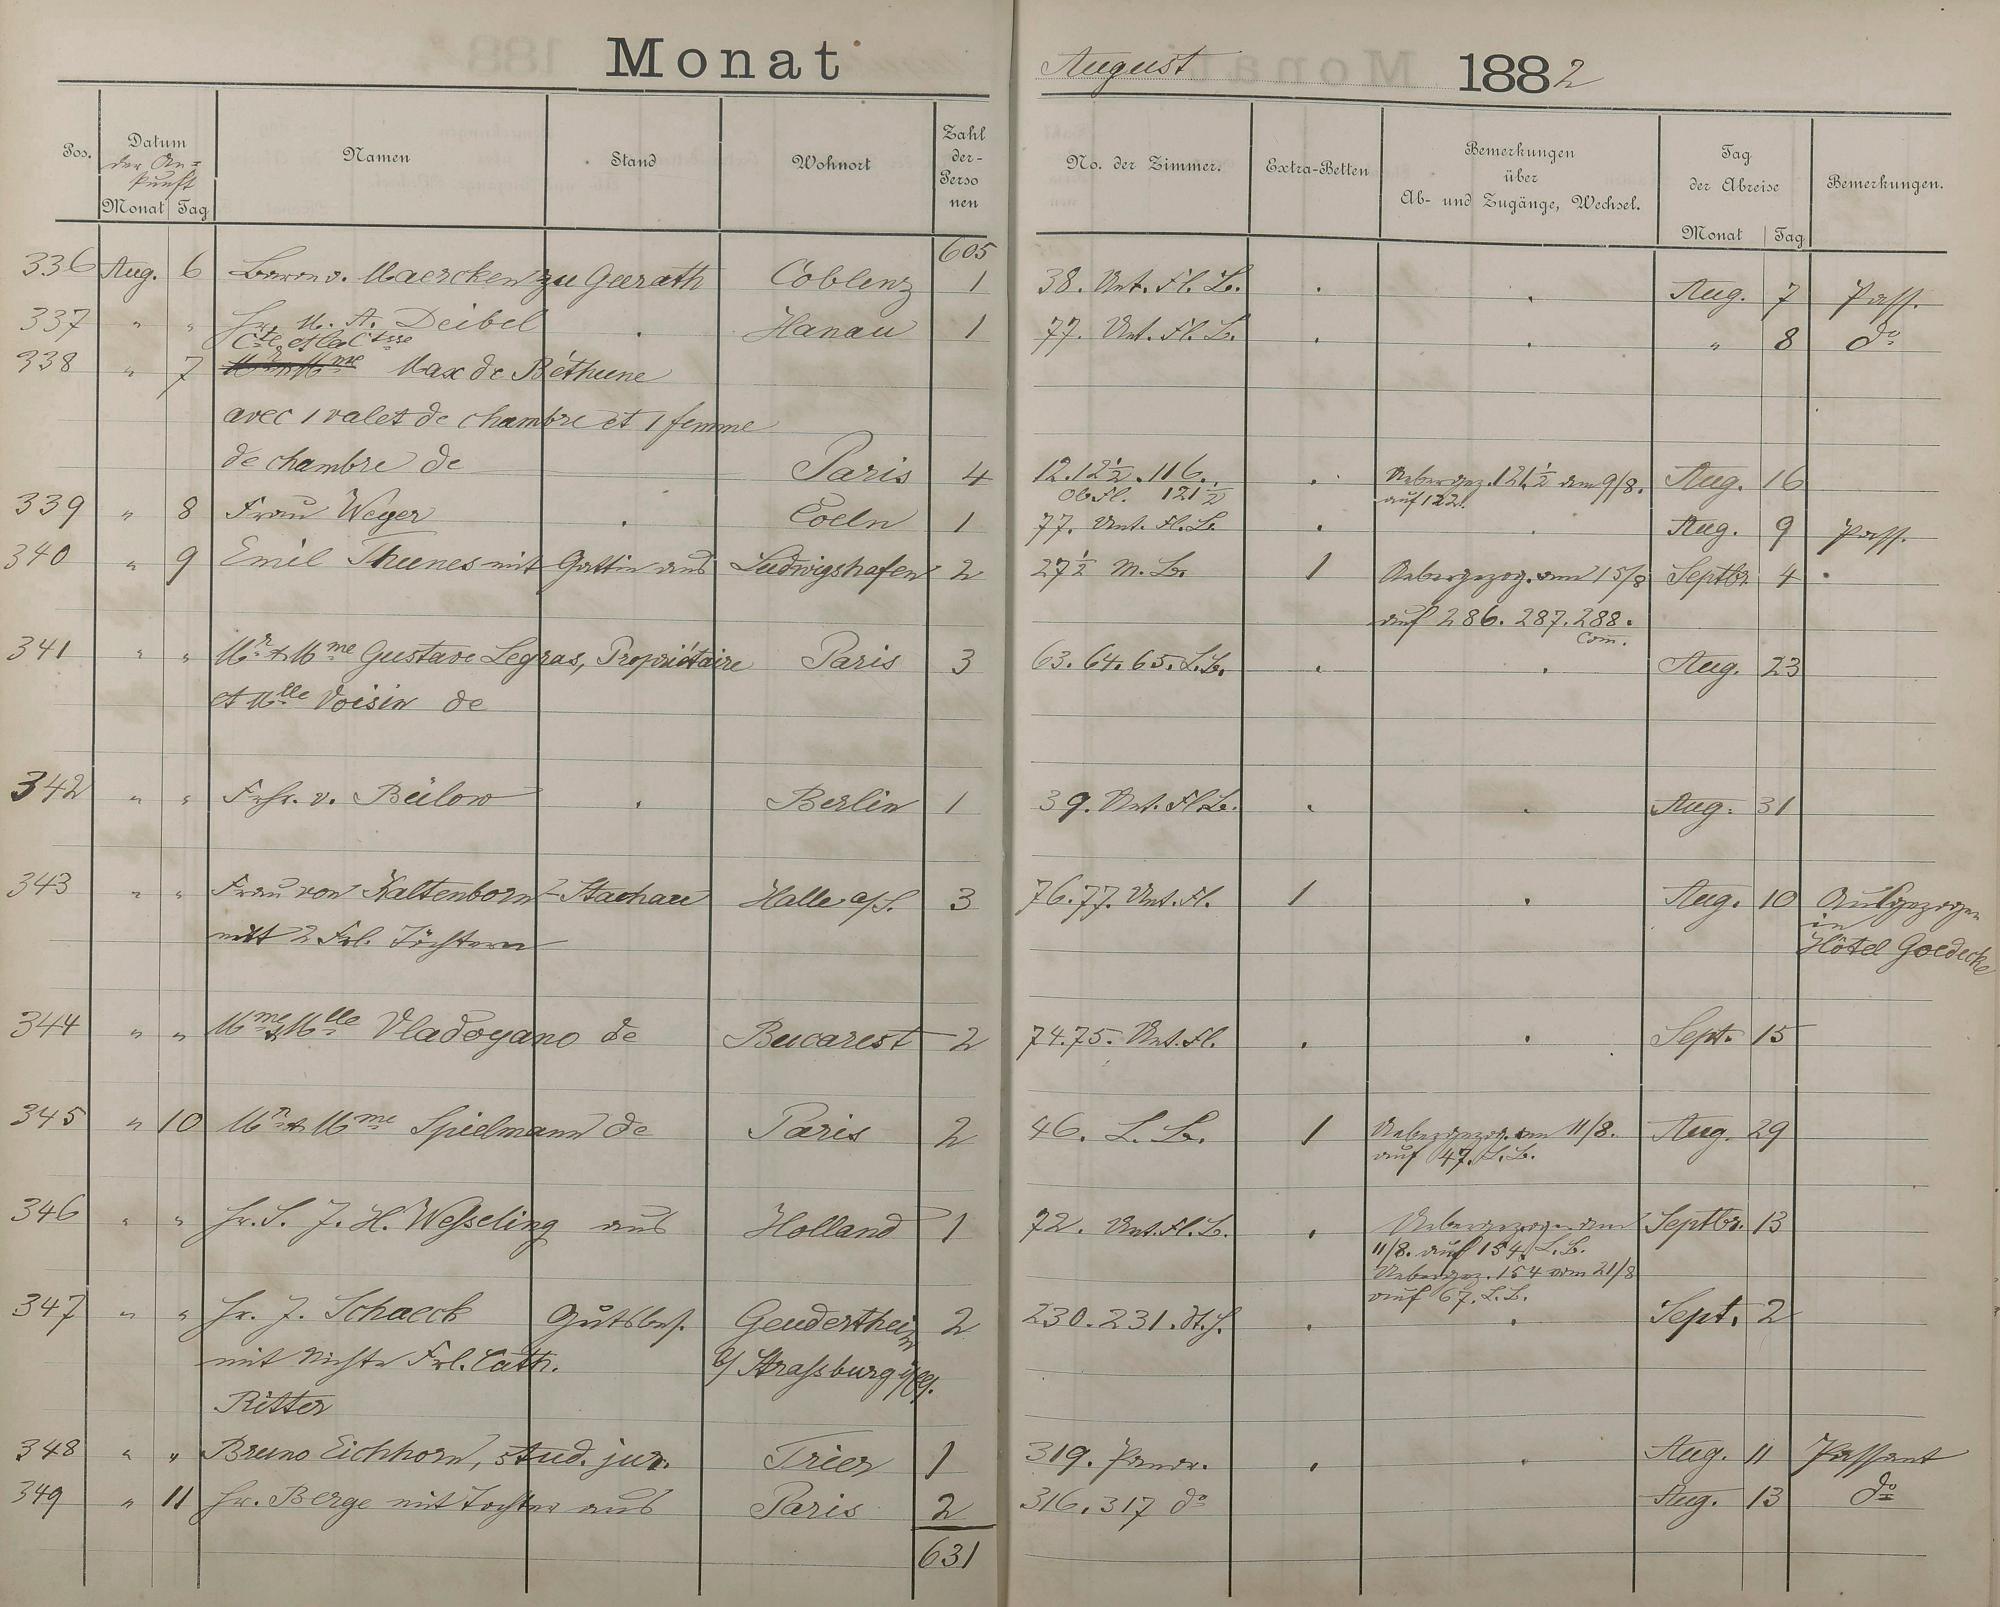 Monat August 1882
Pos. Datum der An= Namen Stand Wohnort Zahl No. der Zimmer. Extra-Betten Bemerkungen Tag Bemerkungen.
kunft der- über der Abreise
Monat Tag Perso Ab- und Zugänge, Wechsel. Monat Tag
nen
605
336 Aug. 6 Baron v. Maercken zu Geerath Coblenz 1 38. Unt. Fl. B. . . Aug. 7 Pass.
337 " " Hr. M. A. Deibel . Hanau 1 77. Unt. Fl. B. . . " 8 do
Cte et la Ctsse
338 " 7 Mr & Mme Max de Béthune
avec 1 valet de chambre et 1 femme
de chambre de Paris 4 12. 12½. 116. . Uebergez. 121½ am 9/8. Aug. 16
Ob. Fl. 121½ auf 122.
339 " 8 Frau Weyer . Coeln 1 77. Unt. Fl. B. . . Aug. 9 Pass.
340 " 9 Emil Thunes mit Gattin aus Ludwigshafen 2 27½ M. B. 1 Uebergezog. am 15/8 Septbr 4 .
auf 286. 287. 288.
Com.
341 " " Mr & Mme Gustave Legras, Propriétaire Paris 3 63. 64. 65. L. B. . . Aug. 23
et Mlle Voisin de
342 " " Frhr. v. Bülow . Berlin 1 39. Unt. Fl. B. . . Aug. 31
343 " " Frau von Kaltenborn-Stachau Halle a/S. 3 76. 77. Unt. Fl. 1 . Aug. 10 Ausgezogen
in
mit 2 Frl. Töchtern Hôtel Goedecke
344 " " Mme & Mlle Vladoyano de Bucarest 2 74. 75. Unt. Fl. . . Sept. 15
345 " 10 Mr & Mme Spielmann de Paris 2 46. L. B. 1 Uebergezog. am 11/8. Aug. 29
auf 47. L. B.
346 " " Hr. S. J. H. Wesseling aus Holland 1 72. Unt. Fl. B. . Uebergezogen am Septbr. 13
11/8. auf 154. L. B.
Uebergez. 154 am 21/8
auf 67. L. B.
347 " " Hr. J. Schaeck Gutsbes. Geudertheim 2 230. 231. . . Sept. 2
mit Nichte Frl. Cath. b/ Strassburg
Ritter
348 " " Bruno Eichhorn, stud. jur. Trier 1 319. . . Aug. 11 Passant
349 " 11 Hr. Berge mit Tochter aus Paris 2 316. 317 do Aug. 13 do
631